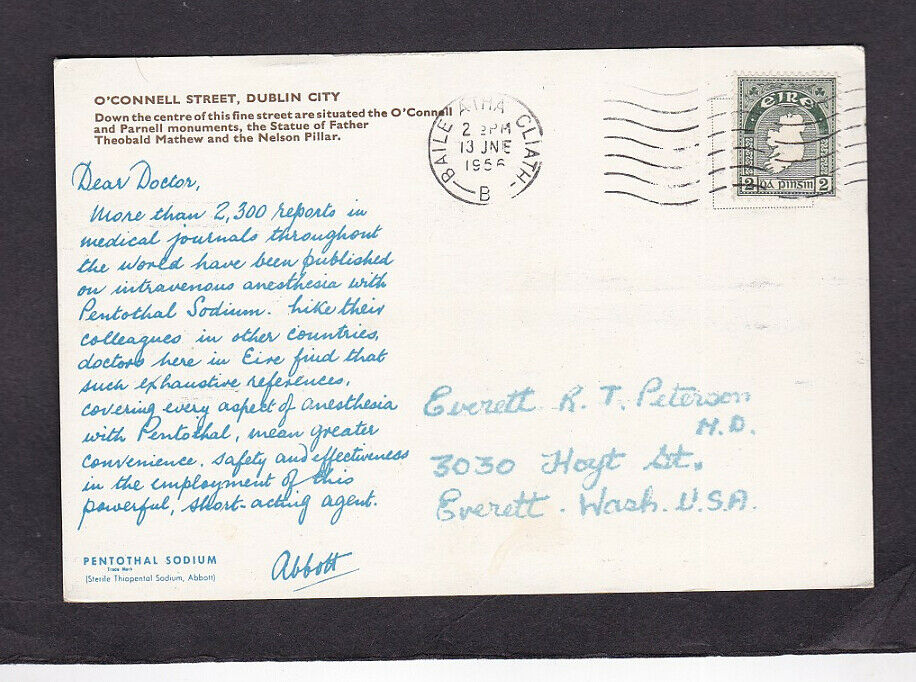 O'CONNELL STREET, DUBLIN CITY
Down the centre of this fine street are situated the O'Connell
and Parnell monuments, the Statue of Father
Theobald Mathew and the Nelson Pillar.
BAILE ATHA CLIATH
PM
13 JNE
1956
B
EIRE
2 DÁ PINGIN 2
Dear Doctor,
More than 2,300 reports in
medical journals throughout
the world have been published
on intravenous anesthesia with
Pentothal Sodium. Like their
colleagues in other countries,
doctors here in Eire find that
such exhaustive references,
covering every aspect of anesthesia
with Pentothal, mean greater
convenience, safety and effectiveness
in the employment of this
powerful, short-acting agent.
Abbott
PENTOTHAL SODIUM
Trade Mark
(Sterile Thiopental Sodium, Abbott)
Everett R. T. Peterson
M.D.
3030 Hoyt St.
Everett. Wash. U.S.A.